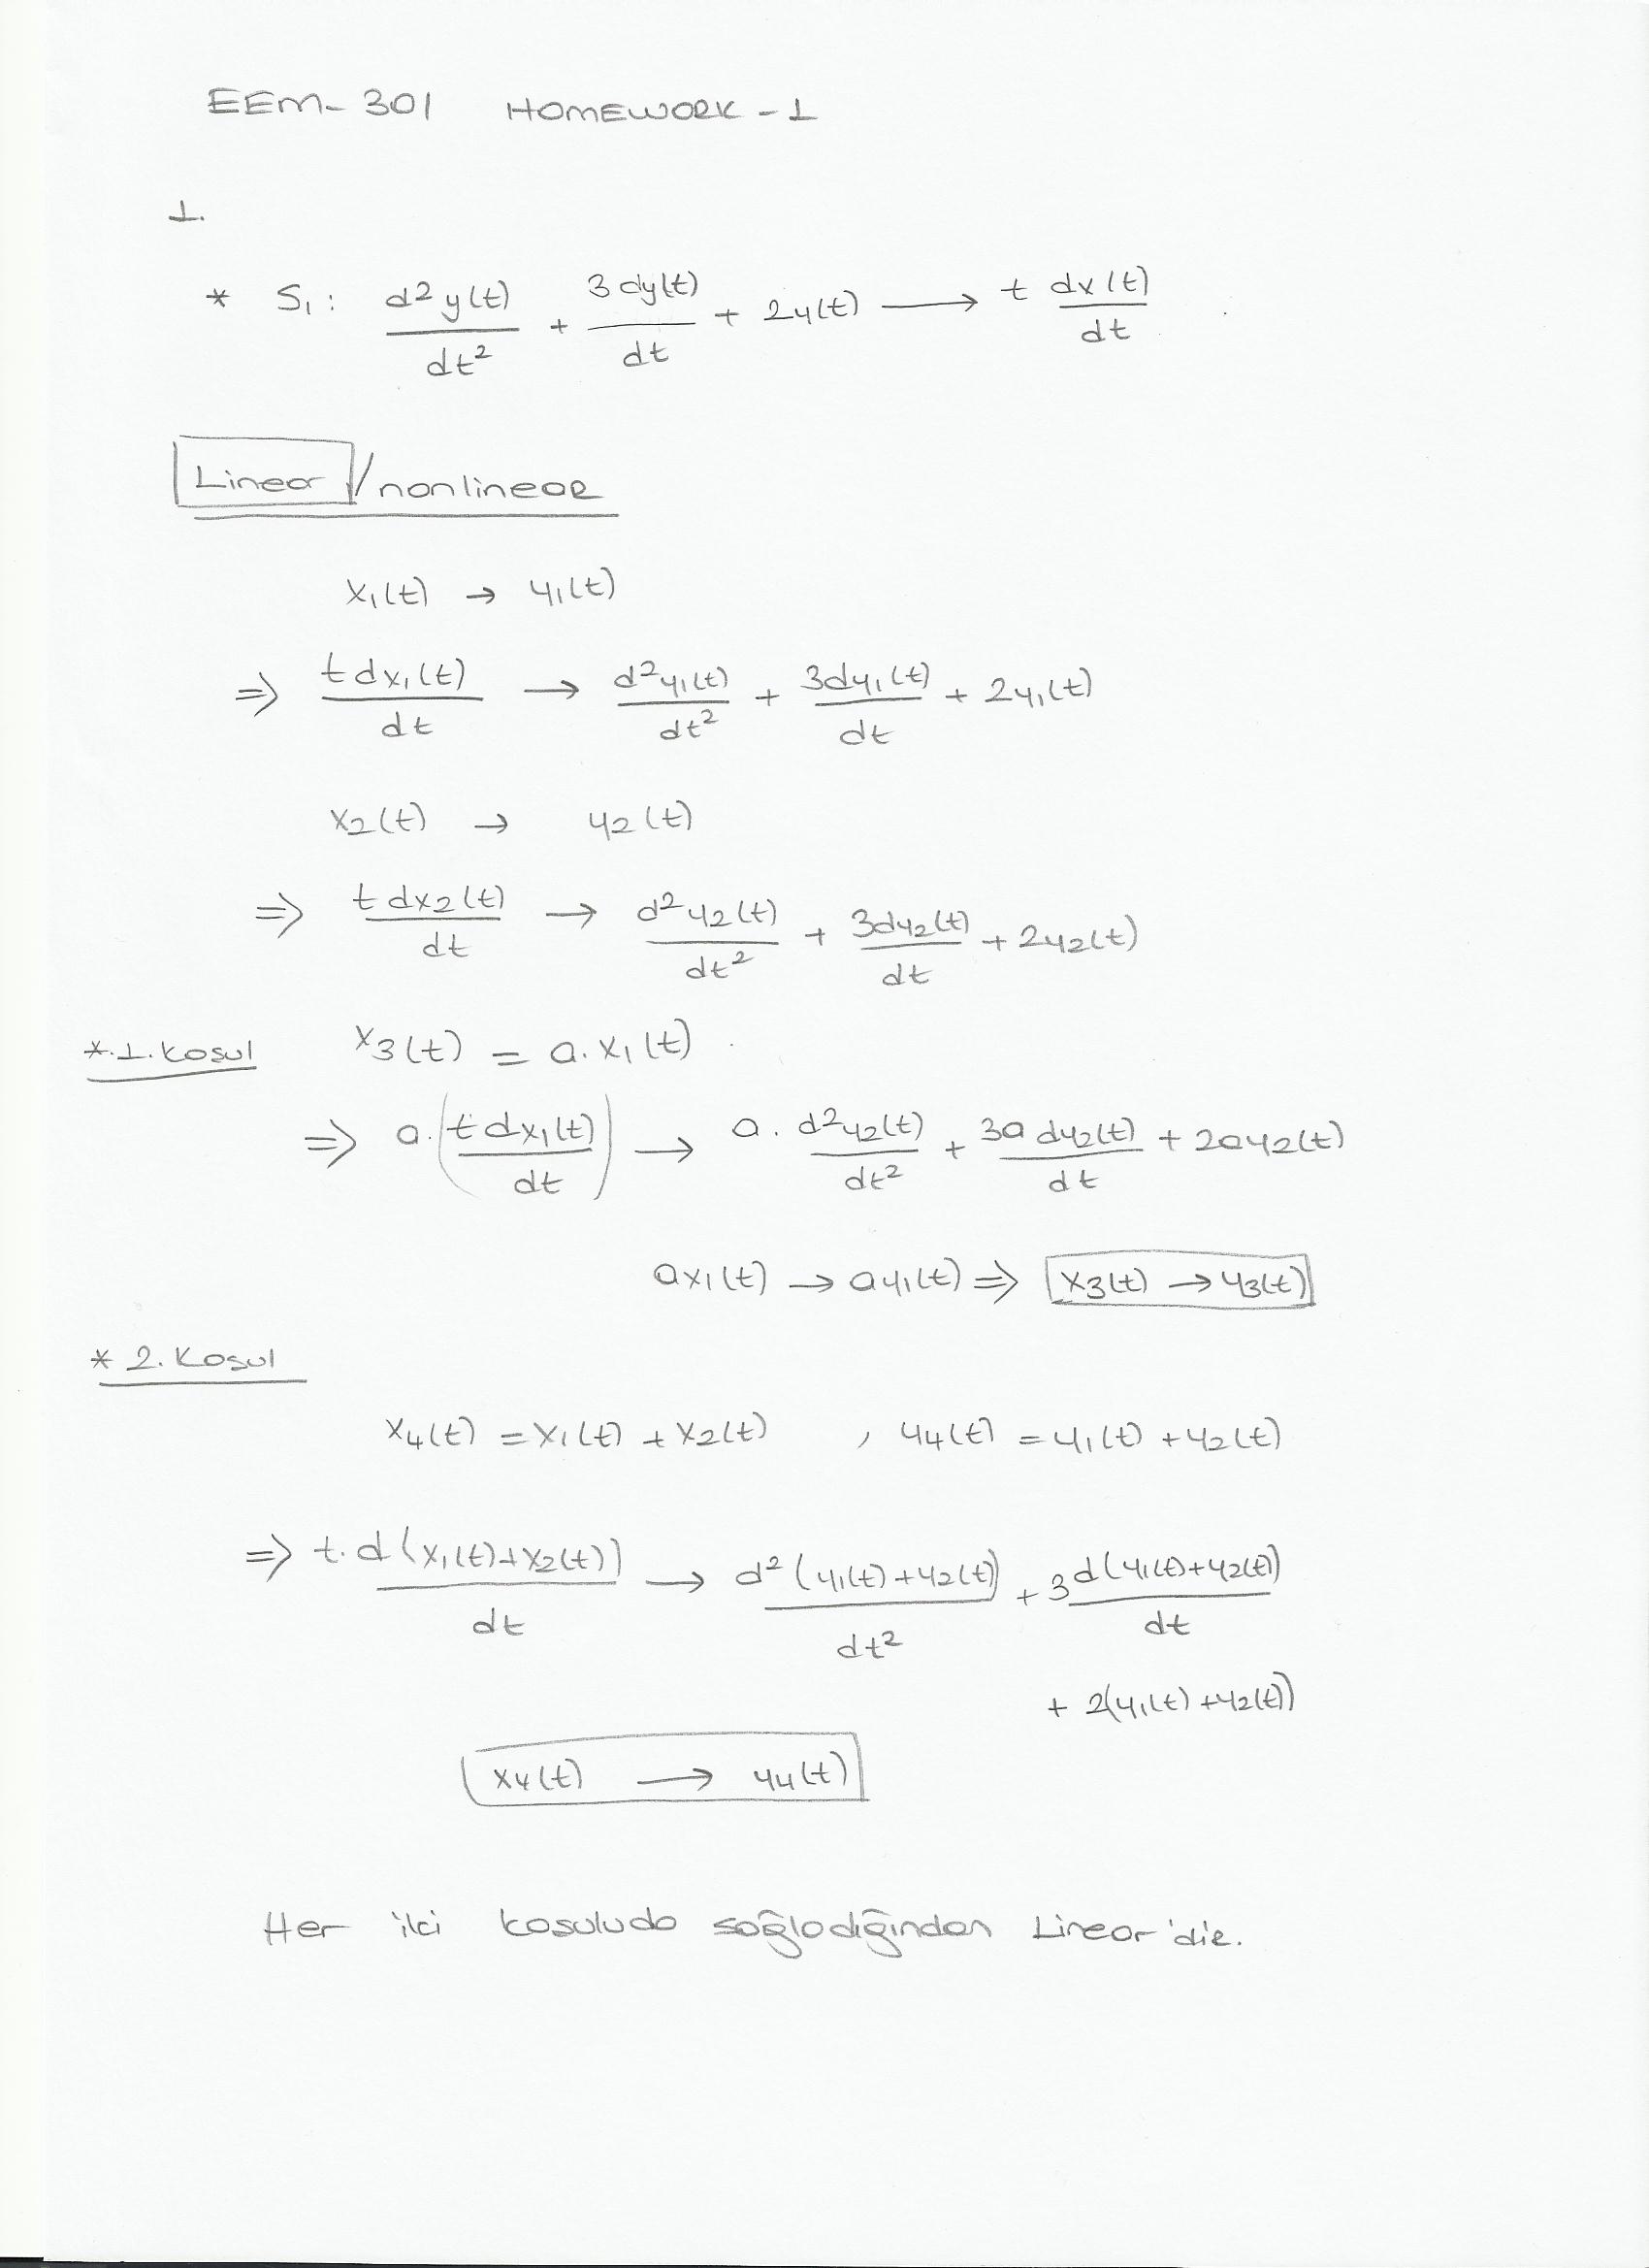 EEM- 301 HOMEWORK - 1
1.
* S₁ : d²y(t)/dt² + 3dy(t)/dt + 2y(t) ⟶ t dx(t)/dt
Linear / nonlinear
x₁(t) → y₁(t)
⇒ t dx₁(t)/dt → d²y₁(t)/dt² + 3dy₁(t)/dt + 2y₁(t)
x₂(t) → y₂(t)
⇒ t dx₂(t)/dt → d²y₂(t)/dt² + 3dy₂(t)/dt + 2y₂(t)
*.1. Kosul x₃(t) = a.x₁(t)
⇒ a.(t dx₁(t)/dt) → a. d²y₂(t)/dt² + 3a dy₂(t)/dt + 2ay₂(t)
ax₁(t) → ay₁(t) ⇒ x₃(t) → y₃(t)
* 2. Kosul
x₄(t) = x₁(t) + x₂(t) , y₄(t) = y₁(t) + y₂(t)
⇒ t.d(x₁(t)+x₂(t))/dt → d²(y₁(t)+y₂(t))/dt² + 3d(y₁(t)+y₂(t))/dt
+ 2(y₁(t)+y₂(t))
x₄(t) ⟶ y₄(t)
Her iki kosuluda sağladığından Linear'dir.